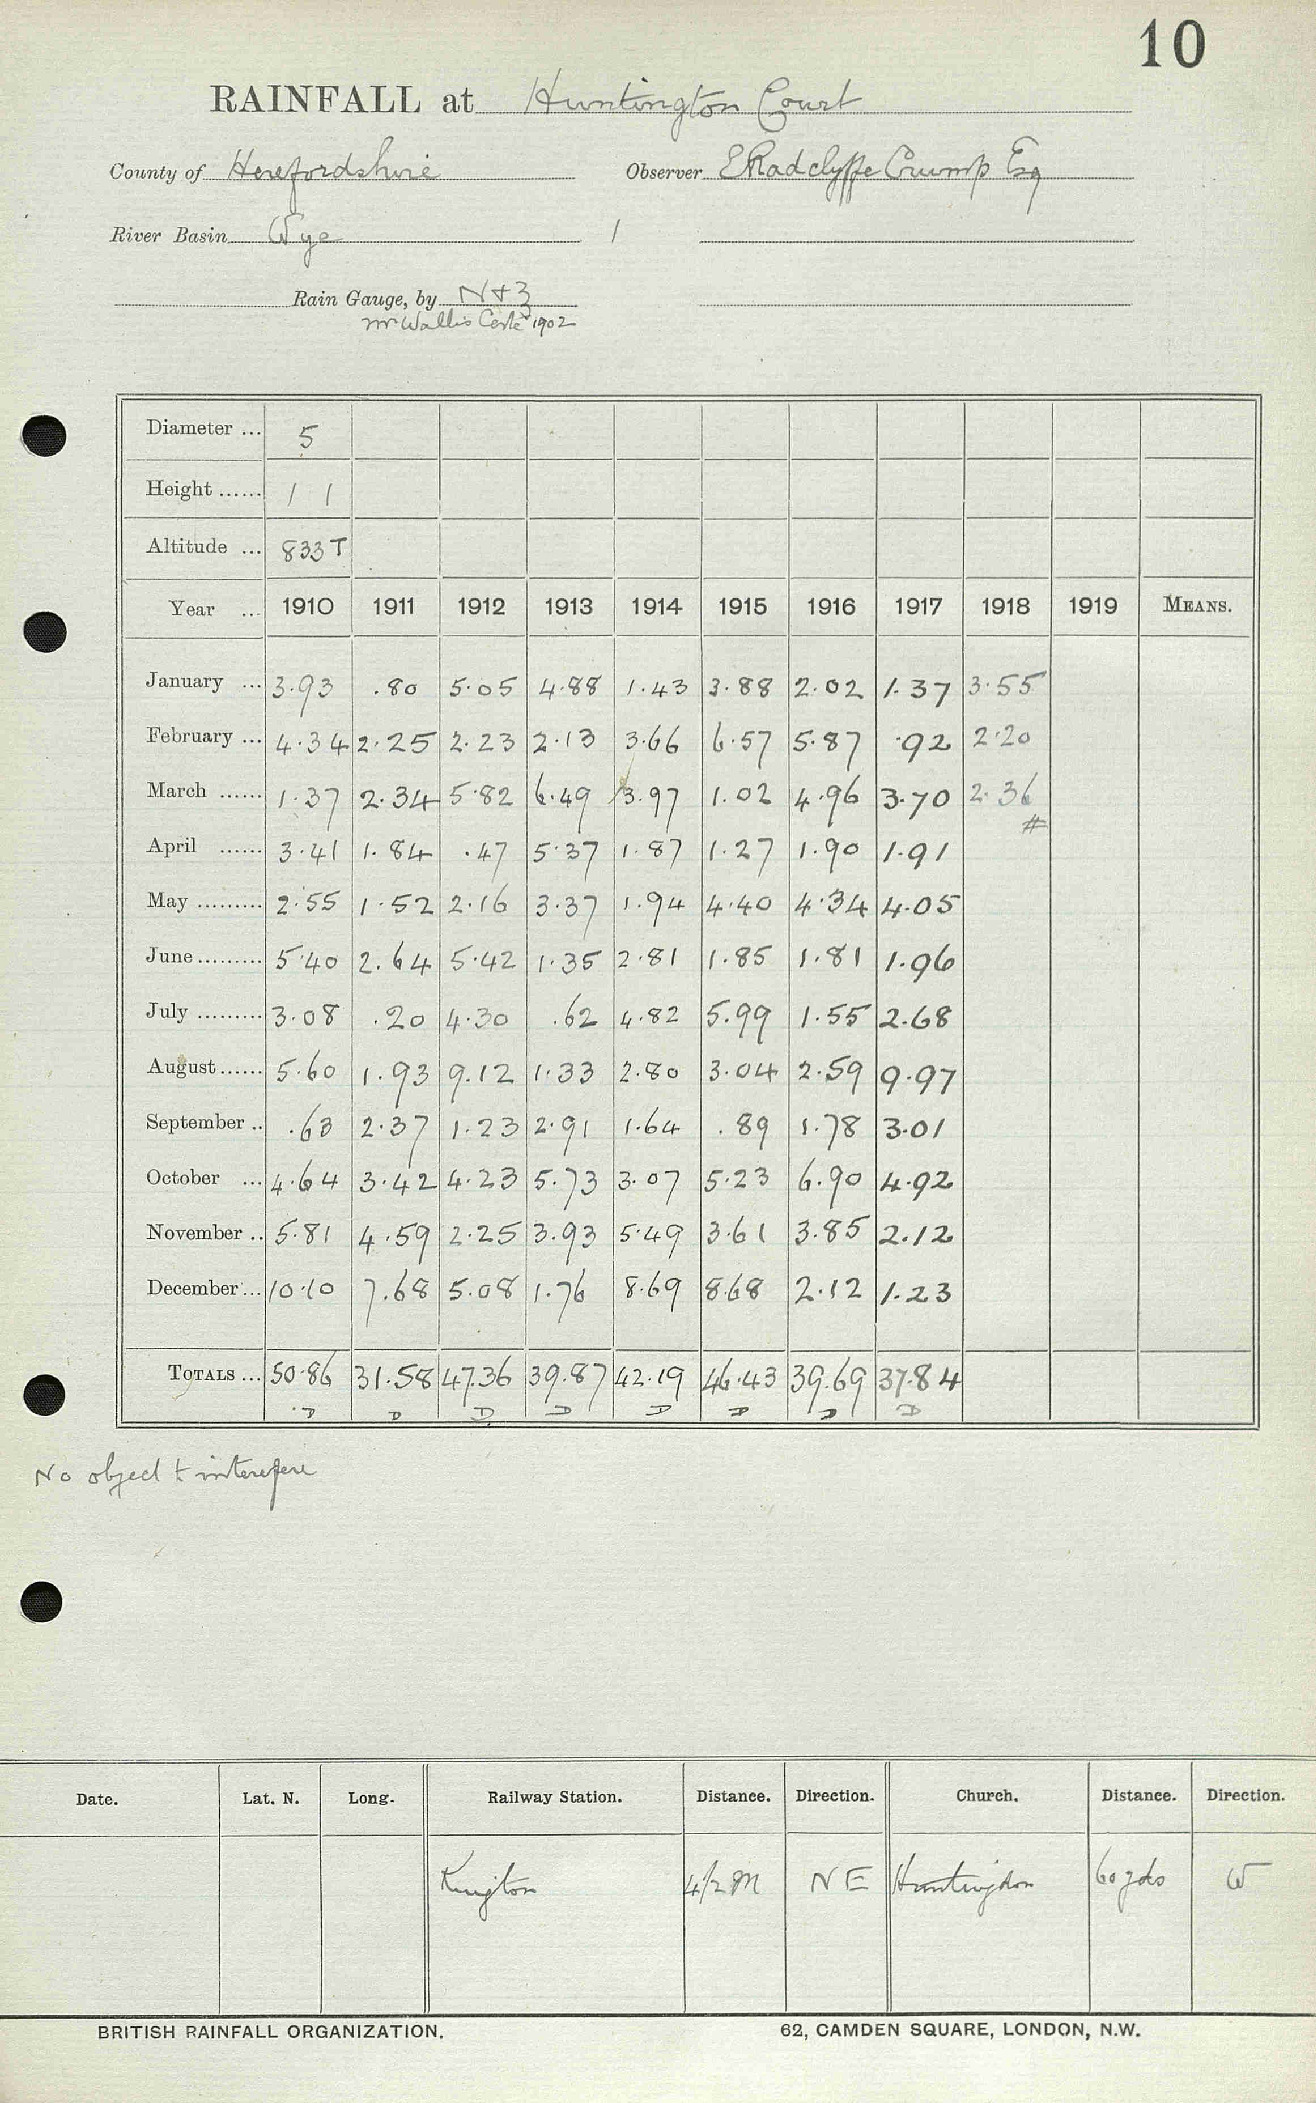 10
RAINFALL at Huntington Court
County of Herefordshire Observer E Radclyffe Crump Esq
River Basin Wye 1
Rain Gauge, by N+Z
Mr Wallis 1902
Diameter ... 5
Height ...... 1 1
Altitude ... 833 T
Year ... 1910 1911 1912 1913 1914 1915 1916 1917 1918 1919 MEANS.
January ... 3.93 .80 5.05 4.88 1.43 3.88 2.02 1.37 3.55
February ... 4.34 2.25 2.23 2.13 3.66 6.57 5.87 .92 2.20
March ...... 1.37 2.34 5.82 6.49 3.97 1.02 4.96 3.70 2.36
#
April ...... 3.41 1.84 .47 5.37 1.87 1.27 1.90 1.91
May ......... 2.55 1.52 2.16 3.37 1.94 4.40 4.34 4.05
June ......... 5.40 2.64 5.42 1.35 2.81 1.85 1.81 1.96
July ......... 3.08 .20 4.30 .62 4.82 5.99 1.55 2.68
August ...... 5.60 1.93 9.12 1.33 2.80 3.04 2.59 9.97
September .. .63 2.37 1.23 2.91 1.64 .89 1.78 3.01
October ... 4.64 3.42 4.23 5.73 3.07 5.23 6.90 4.92
November .. 5.81 4.59 2.25 3.93 5.49 3.61 3.85 2.12
December ... 10.10 7.68 5.08 1.76 8.69 8.68 2.12 1.23
TOTALS ... 50.86 31.58 47.36 39.87 42.19 46.43 39.69 37.84
D D D D D D D D
No object to interefere
Date. Lat. N. Long. Railway Station. Distance. Direction. Church. Distance. Direction.
Kington 4½ M NE Huntingdon 60 yds W
BRITISH RAINFALL ORGANIZATION. 62, CAMDEN SQUARE, LONDON, N.W.